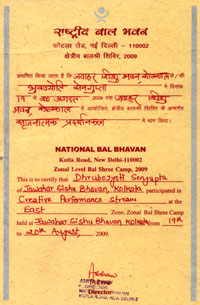 राष्ट्रीय बाल भवन
कोटला रोड, नई दिल्ली - 110002
क्षेत्रीय बालश्री शिविर, 2009
प्रमाणित किया जाता है कि जवाहर शिशु भवन कोलकाता के/की
ध्रुवज्योति सेनगुप्ता ने
19 से 20 अगस्त 2009 तक जवाहर शिशु
भवन, कोलकाता में आयोजित, क्षेत्रीय बालश्री शिविर के अन्तर्गत
सृजनात्मक प्रदर्शनकला में भाग लिया।
NATIONAL BAL BHAVAN
Kotla Road, New Delhi-110002
Zonal Level Bal Shree Camp, 2009
This is to certify that Dhrubojyoti Sengupta
of Jawahar Sishu Bhavan, Kolkata participated in
Creative Performance stream at the
East Zone, Zonal Bal Shree Camp
held at Jawahar Sishu Bhavan Kolkata from 19th
to 20th August, 2009.
Director
KOTLA ROAD, NEW DELHI-2